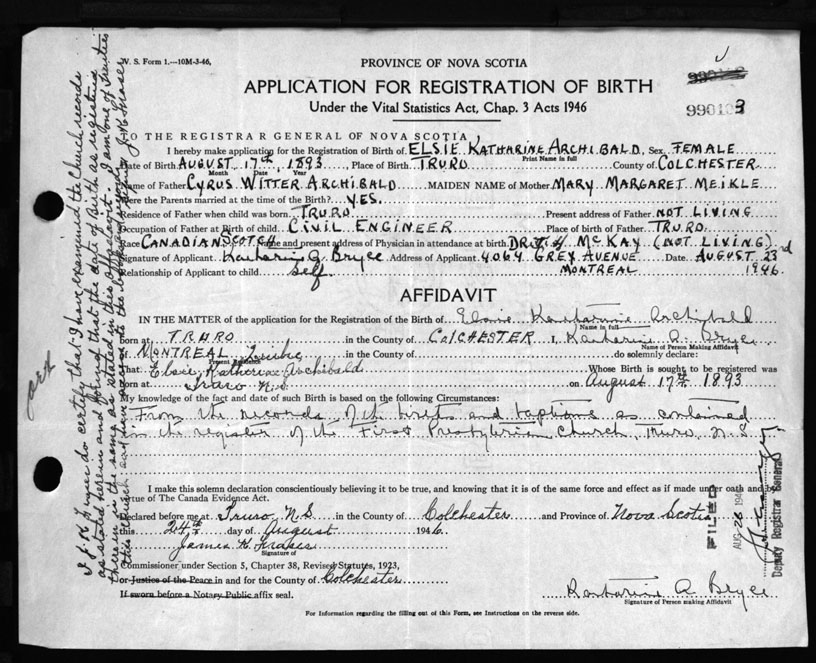 V. S. Form 1.—10M-3-46,
PROVINCE OF NOVA SCOTIA
APPLICATION FOR REGISTRATION OF BIRTH
Under the Vital Statistics Act, Chap. 3 Acts 1946
990103
TO THE REGISTRAR GENERAL OF NOVA SCOTIA
I hereby make application for the Registration of Birth of ELSIE KATHARINE ARCHIBALD Sex FEMALE
Print Name in full
Date of Birth AUGUST 17th, 1893, Place of Birth TRURO County of COLCHESTER
Month Date Year
Name of Father CYRUS WITTER ARCHIBALD MAIDEN NAME of Mother MARY MARGARET MEIKLE
Were the Parents married at the time of Birth? YES.
Residence of Father when child was born TRURO Present address of Father NOT LIVING
Occupation of Father at Birth of child CIVIL ENGINEER Place of birth of Father TRURO
Race CANADIAN SCOTCH Name and present address of Physician in attendance at birth DR. McKAY (NOT LIVING)
Signature of Applicant Katharine A. Bryce Address of Applicant 4064 GREY AVENUE Date AUGUST 23rd
Relationship of Applicant to child self MONTREAL 1946.
AFFIDAVIT
IN THE MATTER of the application for the Registration of the Birth of Elsie Katharine Archibald
Name in full
born at TRURO in the County of COLCHESTER I, Katharine A. Bryce
Name of Person Making Affidavit
of MONTREAL Quebec in the County of do solemnly declare:
Present Residence
That Elsie Katherine Archibald Whose Birth is sought to be registered was
born at Truro N.S. on August 17th 1893
My knowledge of the fact and date of such Birth is based on the following Circumstances:
From the records of the births and baptisms as contained
in the register of the First Presbyterian Church, Truro, N.S.
I make this solemn declaration conscientiously believing it to be true, and knowing that it is of the same force and effect as if made under oath and by
virtue of The Canada Evidence Act.
Declared before me at Truro N.S in the County of Colchester and Province of Nova Scotia
this 24th day of August 1946
James H. Fraser
Signature of
Commissioner under Section 5, Chapter 38, Revised Statutes, 1923,
or Justices of the Peace in and for the County of Colchester
If sworn before a Notary Public affix seal.
Katharine A Bryce
Signature of Person making Affidavit
For Information regarding the filling out of this Form, see Instructions on the reverse side.
I J. H. Fraser do certify that I have examined the Church records
as stated herein and find that the date of Birth as registered
therein is the same as stated in this affidavit. I am one of Trustees
of this church J H Fraser
FILED
AUG 26 1946
Deputy Registrar General